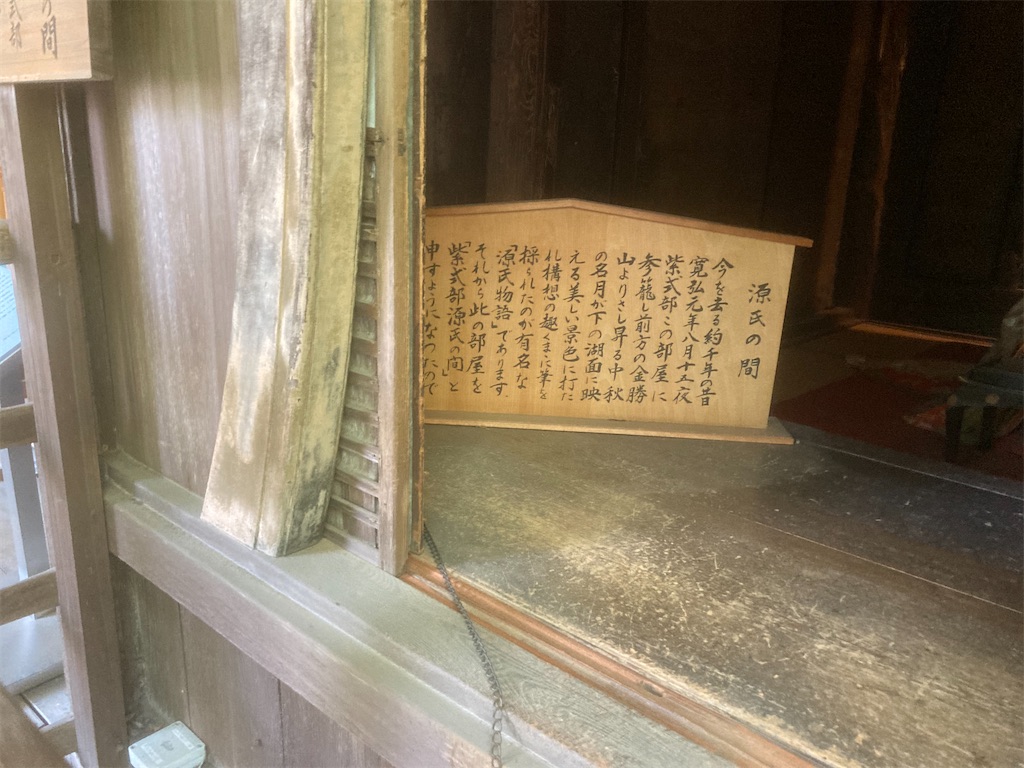 源氏の間
今を去る約千年の昔
寛弘元年八月十五夜
紫式部この部屋に
参籠し前方の金勝
山よりさし昇る中秋
の名月が下の湖面に映
える美しい景色に打た
れ構想の趣くまゝに筆を
採られたのが有名な
「源氏物語」であります。
それから此の部屋を
「紫式部源氏の間」と
申すようになつたので
の間
式部